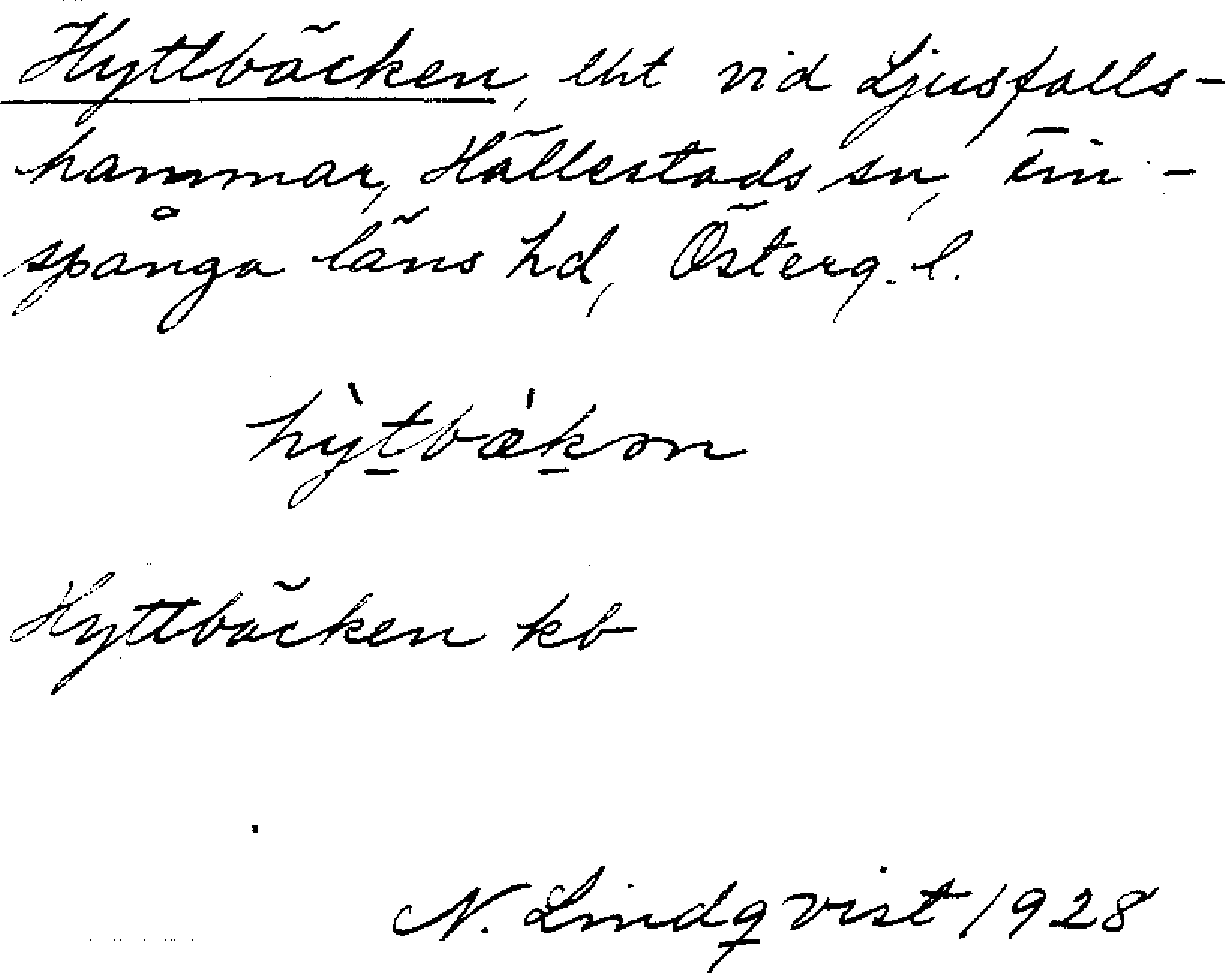 Hyttbäcken, lht vid Ljusfalls-
hammar, Hällestads sn, Fin-
spånga läns hd, Österg. l.
hỳt̠bæ̍k̠ən
Hyttbäcken kb
N. Lindqvist 1928